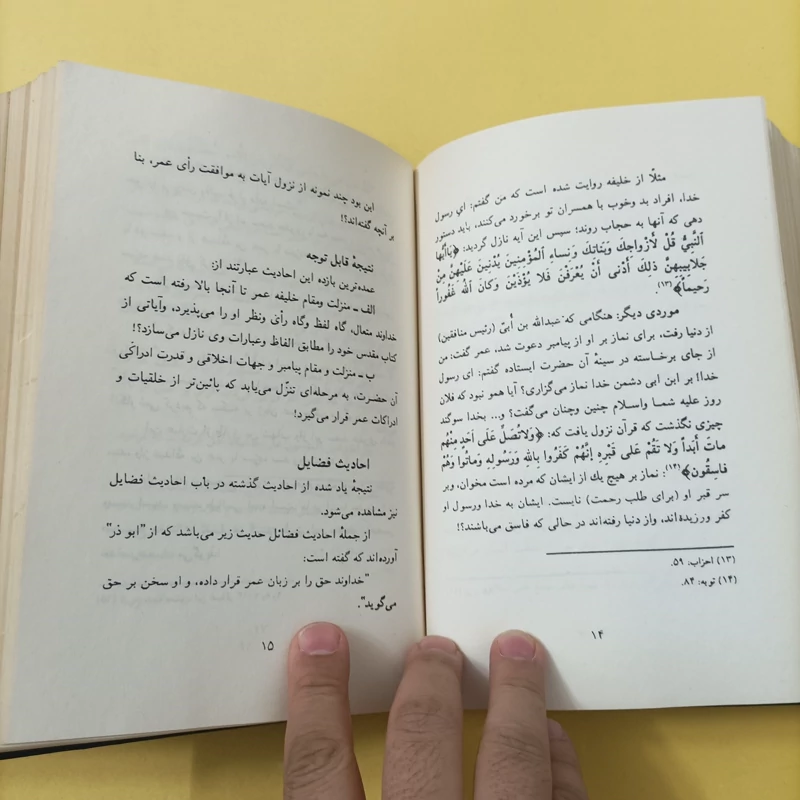 مثلاً از خلیفه روایت شده است که من گفتم: ای رسول
خدا، افراد بد وخوب با همسران تو برخورد می‌کنند، باید دستور
دهی که آنها به حجاب روند؛ سپس این آیه نازل گردید: ﴿یَاأَیُّها
آلنَّبِیُّ قُلْ لأَزْواجِكَ وَبَناتِكَ وَنِساءِ آلمُؤْمِنِینَ یُدْنِینَ عَلَیْهِنَّ مِنْ
جَلابِیبِهِنَّ ذلِكَ أَدْنی أَنْ یُعْرَفْنَ فَلا یُؤْذَیْنَ وَکانَ آللهُ غَفُوراً
رَحِیماً﴾(۱۳).
موردی دیگر: هنگامی که عبدالله بن أُبیّ (رئیس منافقین)
از دنیا رفت، برای نماز بر او از پیامبر دعوت شد، عمر گفت: من
از جای برخاسته در سینهٔ آن حضرت ایستاده گفتم: ای رسول
خدا! بر ابن ابی دشمن خدا نماز می‌گزاری؟ آیا همو نبود که فلان
روز علیه شما واسلام چنین وچنان می‌گفت؟ و... بخدا سوگند
چیزی نگذشت که قرآن نزول یافت که: ﴿وَلاتُصَلِّ عَلَی أَحَدٍ مِنْهُم
ماتَ أَبَداً وَلا تَقُمْ عَلَی قَبْرِهِ إِنَّهُمْ کَفَرُوا بِاللهِ وَرَسُولِهِ وَماتُوا وَهُمْ
فاسِقُون﴾(۱۴): نماز بر هیچ یك از ایشان که مرده است مخوان، وبر
سر قبر او (برای طلب رحمت) نایست. ایشان به خدا ورسول او
کفر ورزیده‌اند، واز دنیا رفته‌اند در حالی که فاسق می‌باشند؟!
(۱۳) احزاب: ۵۹.
(۱۴) توبه: ۸۴.
۱۴
این بود چند نمونه از نزول آیات به موافقت رأی عمر، بنا
بر آنچه گفته‌اند؟!
نتیجهٔ قابل توجه
عمده‌ترین بازده این احادیث عبارتند از:
الف ـ منزلت ومقام خلیفه عمر تا آنجا بالا رفته است که
خداوند متعال، گاه لفظ وگاه رأی ونظر او را می‌پذیرد، وآیاتی از
کتاب مقدس خود را مطابق الفاظ وعبارات وی نازل می‌سازد؟!
ب ـ منزلت و مقام پیامبر و جهات اخلاقی و قدرت ادراکی
آن حضرت، به مرحله‌ای تنزّل می‌یابد که پائین‌تر از خلقیات و
ادراکات عمر قرار می‌گیرد!
احادیث فضایل
نتیجهٔ یاد شده از احادیث گذشته در باب احادیث فضایل
نیز مشاهده می‌شود.
از جملهٔ احادیث فضائل حدیث زیر می‌باشد که از"ابو ذر"
آورده‌اند که گفته است:
"خداوند حق را بر زبان عمر قرار داده، و او سخن بر حق
می‌گوید".
۱۵